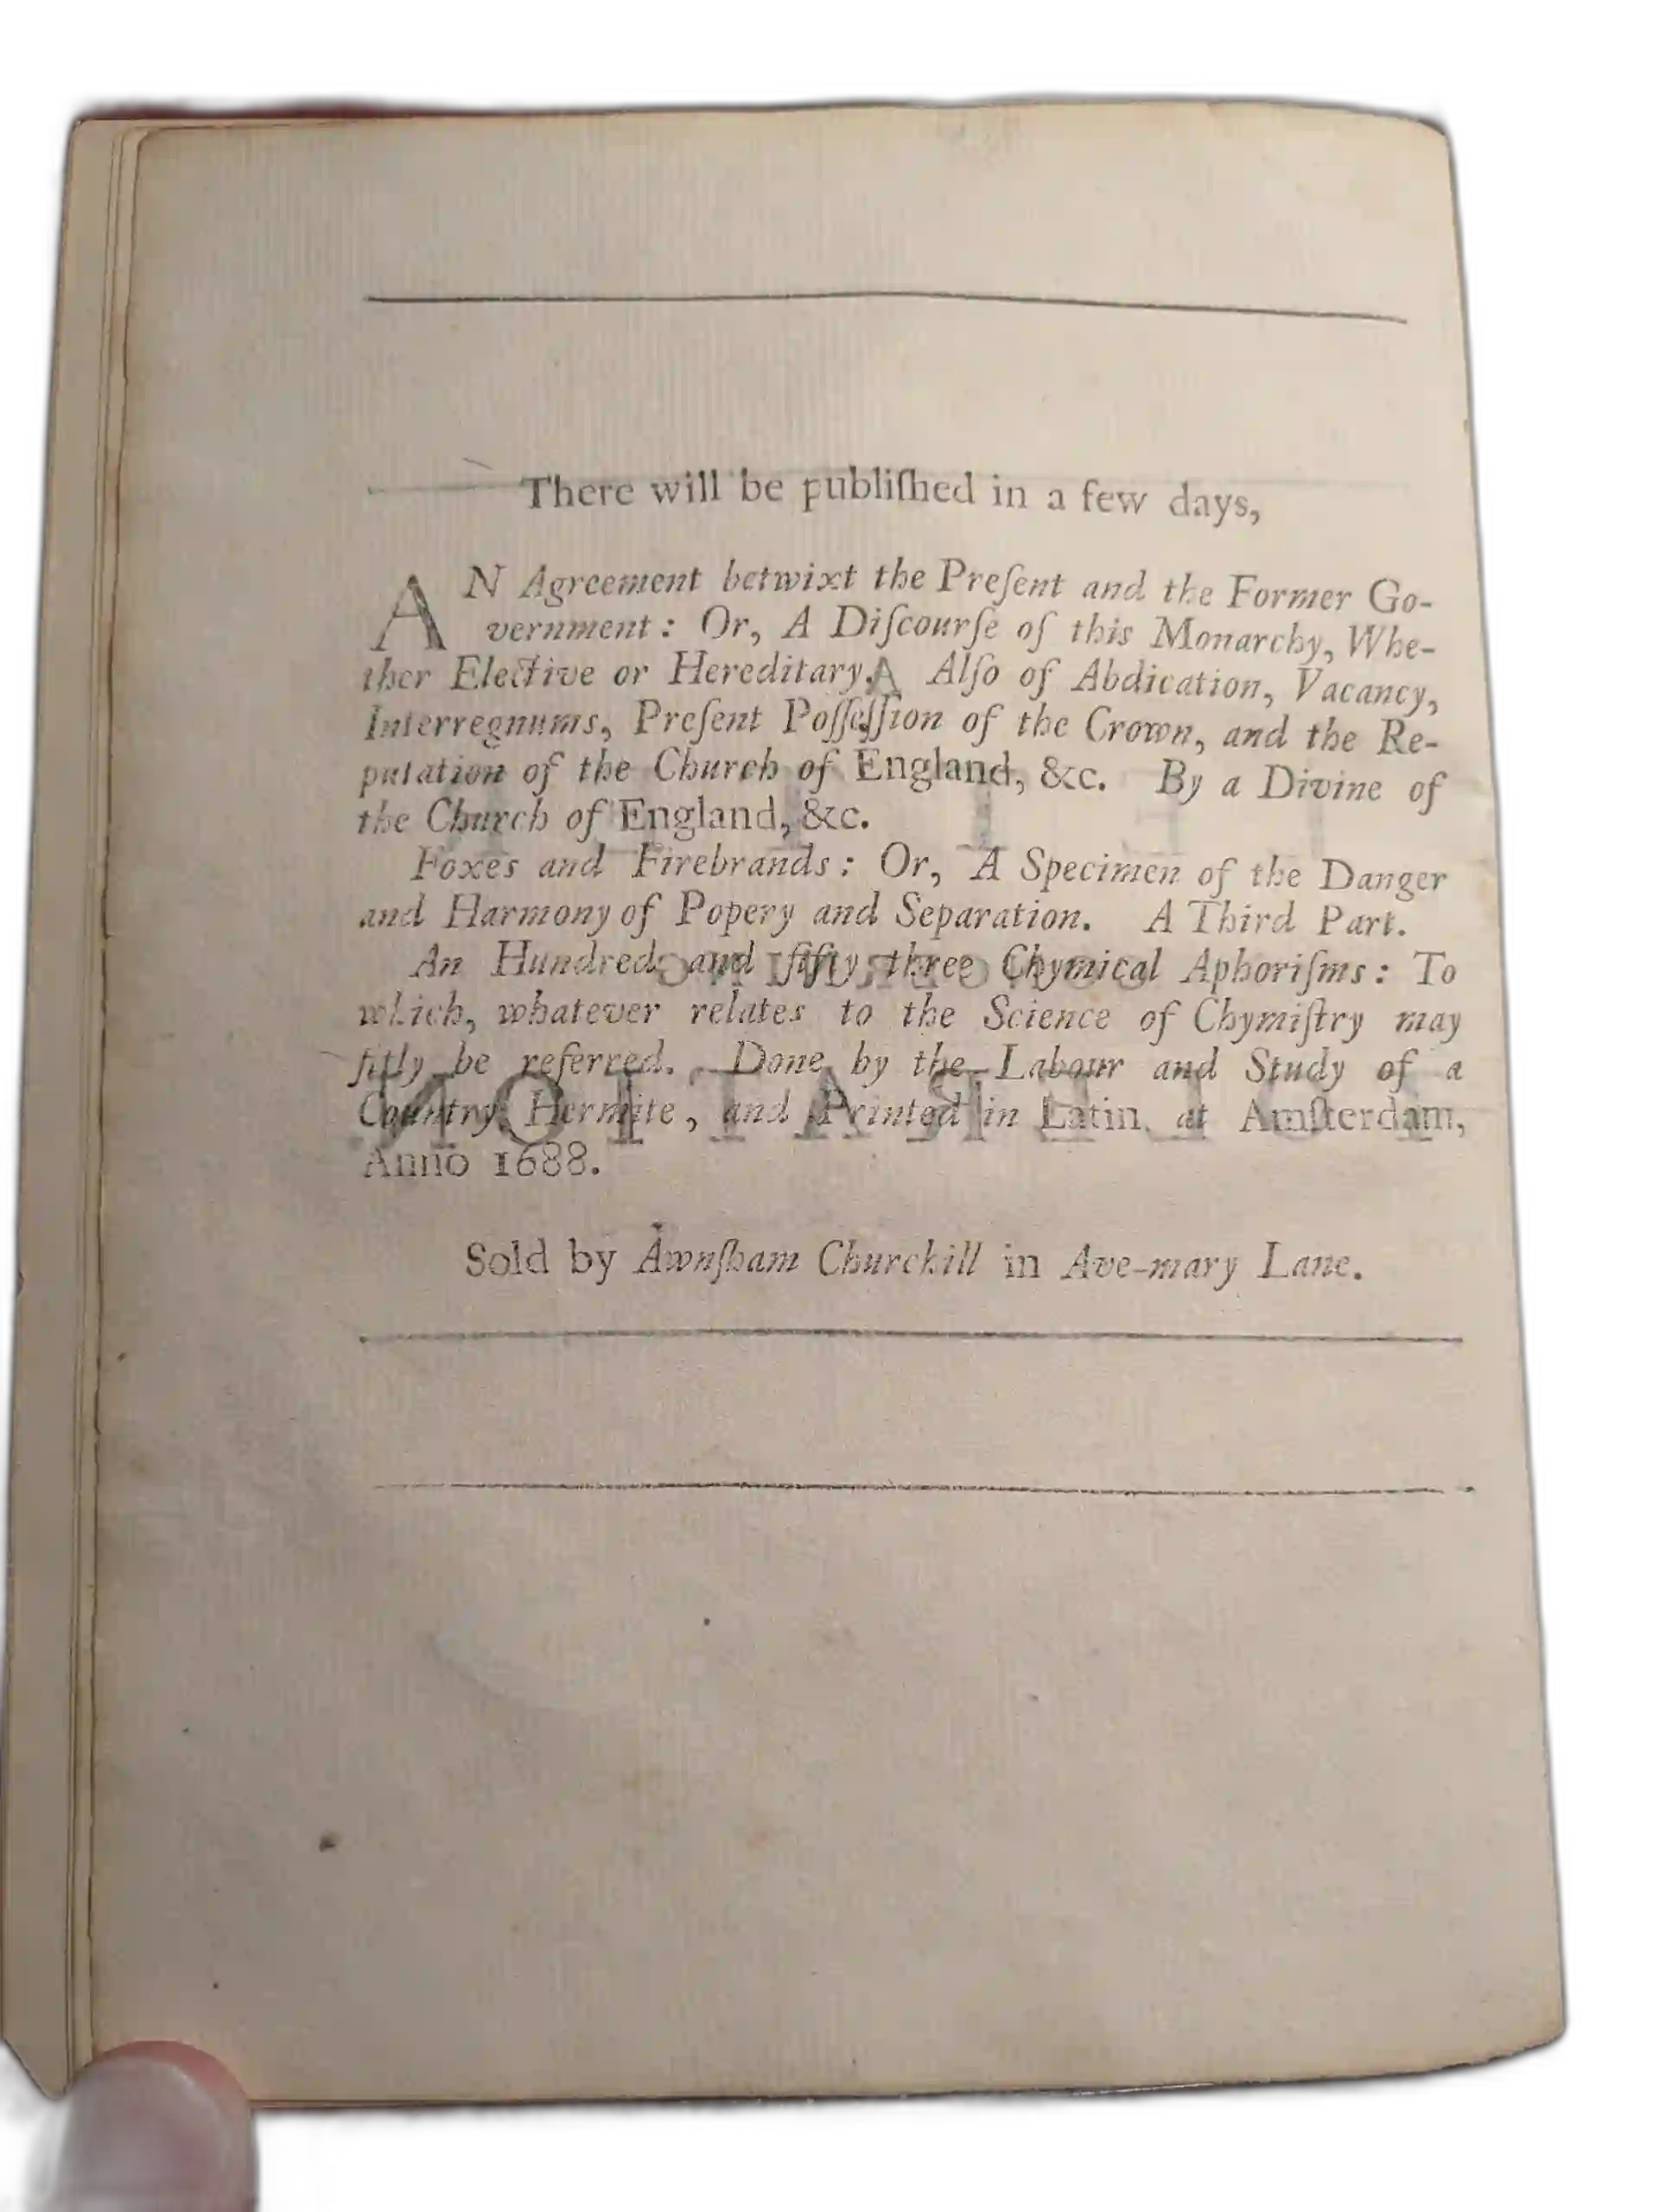 There will be publiſhed in a few days,
AN Agreement betwixt the Preſent and the Former Go-
vernment: Or, A Diſcourſe of this Monarchy, Whe-
ther Elective or Hereditary. Alſo of Abdication, Vacancy,
Interregnums, Preſent Poſſeſſion of the Crown, and the Re-
putation of the Church of England, &c. By a Divine of
the Church of England, &c.
Foxes and Firebrands: Or, A Specimen of the Danger
and Harmony of Popery and Separation. A Third Part.
An Hundred and fifty three Chymical Aphoriſms: To
which, whatever relates to the Science of Chymiſtry may
fitly be referred. Done by the Labour and Study of a
Country Hermite, and Printed in Latin at Amſterdam,
Anno 1688.
Sold by Awnſham Churchill in Ave-mary Lane.